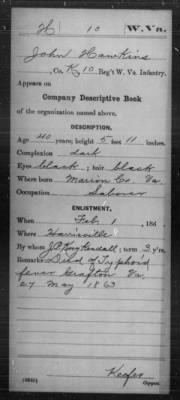 H 10 W. Va.
John Hawkins
Co. K, 10 Reg't W. Va. Infantry.
Appears on
Company Descriptive Book
of the organization named above.
DESCRIPTION.
Age 40 years; height 5 feet 11 inches.
Complexion dark
Eyes black; hair black
Where born Marion Co. Va.
Occupation Laborer
ENLISTMENT.
When Feb. 1, 186
Where Harrisville
By whom Kendall; term 3 y'rs.
Remarks: Died of Typhoid
fever Grafton Va.
27 May 1863
Keefer
Copyist.